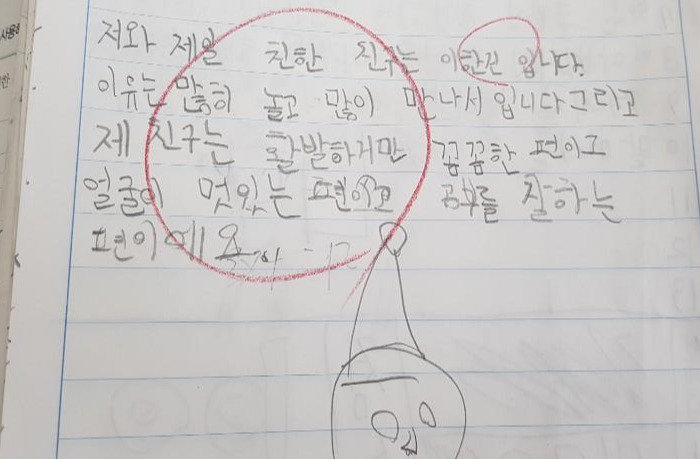 저와 제일 친한 친구는 이한진 입니다.
이유는 많히 놀고 많이 만나서 입니다 그리고
제 친구는 활발하지만 꼼꼼한 편이고
얼굴이 멋있는 편이고 공부를 잘하는
편이에요